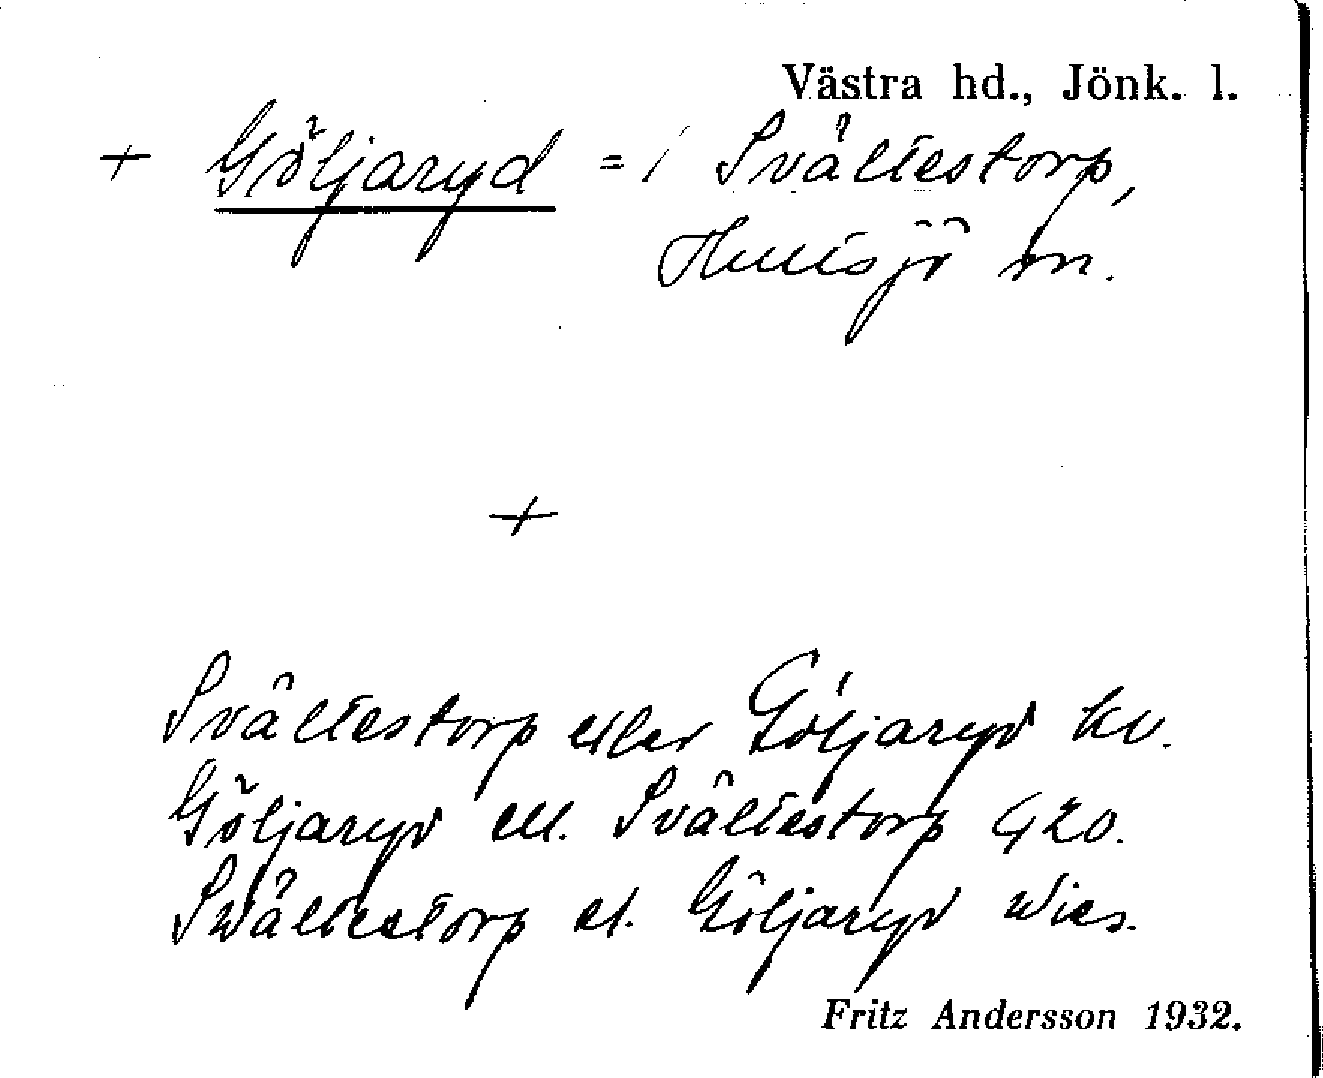 Västra hd., Jönk. l.
+ Göljaryd = i Svältestorp,
Hultsjö sn.
+
Svältestorp eller Göljaryd kv.
Göljaryd ell. Svältestorp G20.
Swältestorp el. Göljaryd Wies.
Fritz Andersson 1932.